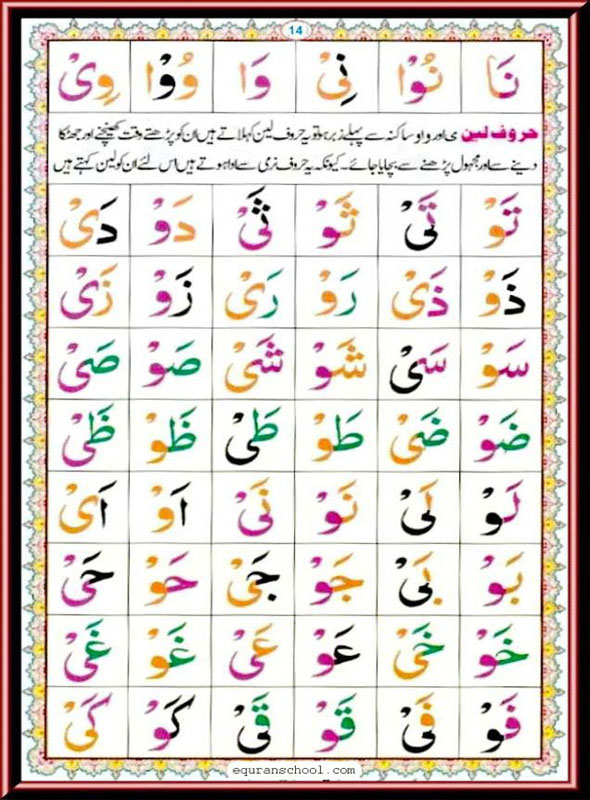 14
نَا نُوْا نِىْ وَا وُوْا وِىْ
حروف لین ی اور واو ساکنہ سے پہلے زبر ہو تو یہ حروف لین کہلاتے ہیں ان کو پڑھتے وقت کھینچنے اور جھٹکا
دینے سے اور مجہول پڑھنے سے بچایا جائے۔ کیونکہ یہ حروف نرمی سے ادا ہوتے ہیں اس لئے ان کو لین کہتے ہیں
تَوْ تَىْ ثَوْ ثَىْ دَوْ دَىْ
ذَوْ ذَىْ رَوْ رَىْ زَوْ زَىْ
سَوْ سَىْ شَوْ شَىْ صَوْ صَىْ
ضَوْ ضَىْ طَوْ طَىْ ظَوْ ظَىْ
لَوْ لَىْ نَوْ نَىْ اَوْ اَىْ
بَوْ بَىْ جَوْ جَىْ حَوْ حَىْ
خَوْ خَىْ عَوْ عَىْ غَوْ غَىْ
فَوْ فَىْ قَوْ قَىْ كَوْ كَىْ
equranschool.com